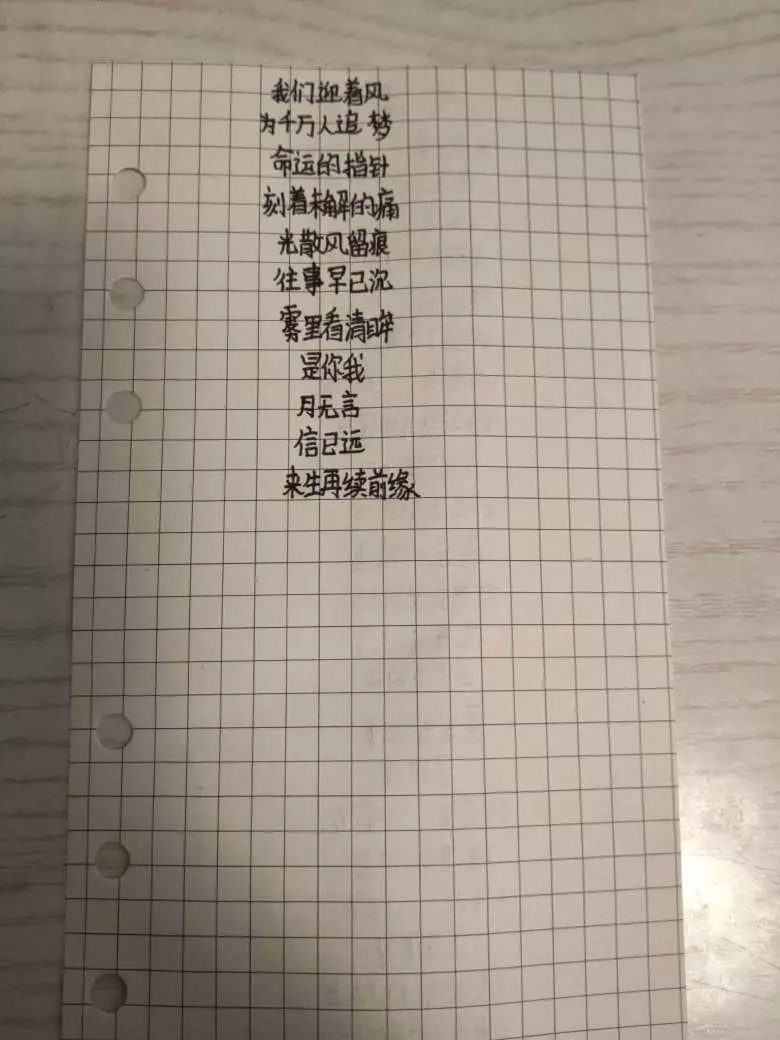 我们迎着风
为千万人追梦
命运的指针
刻着未解的痛
光散风留痕
往事早已沉
雾里看清眸
是你我
月无言
信已远
来生再续前缘